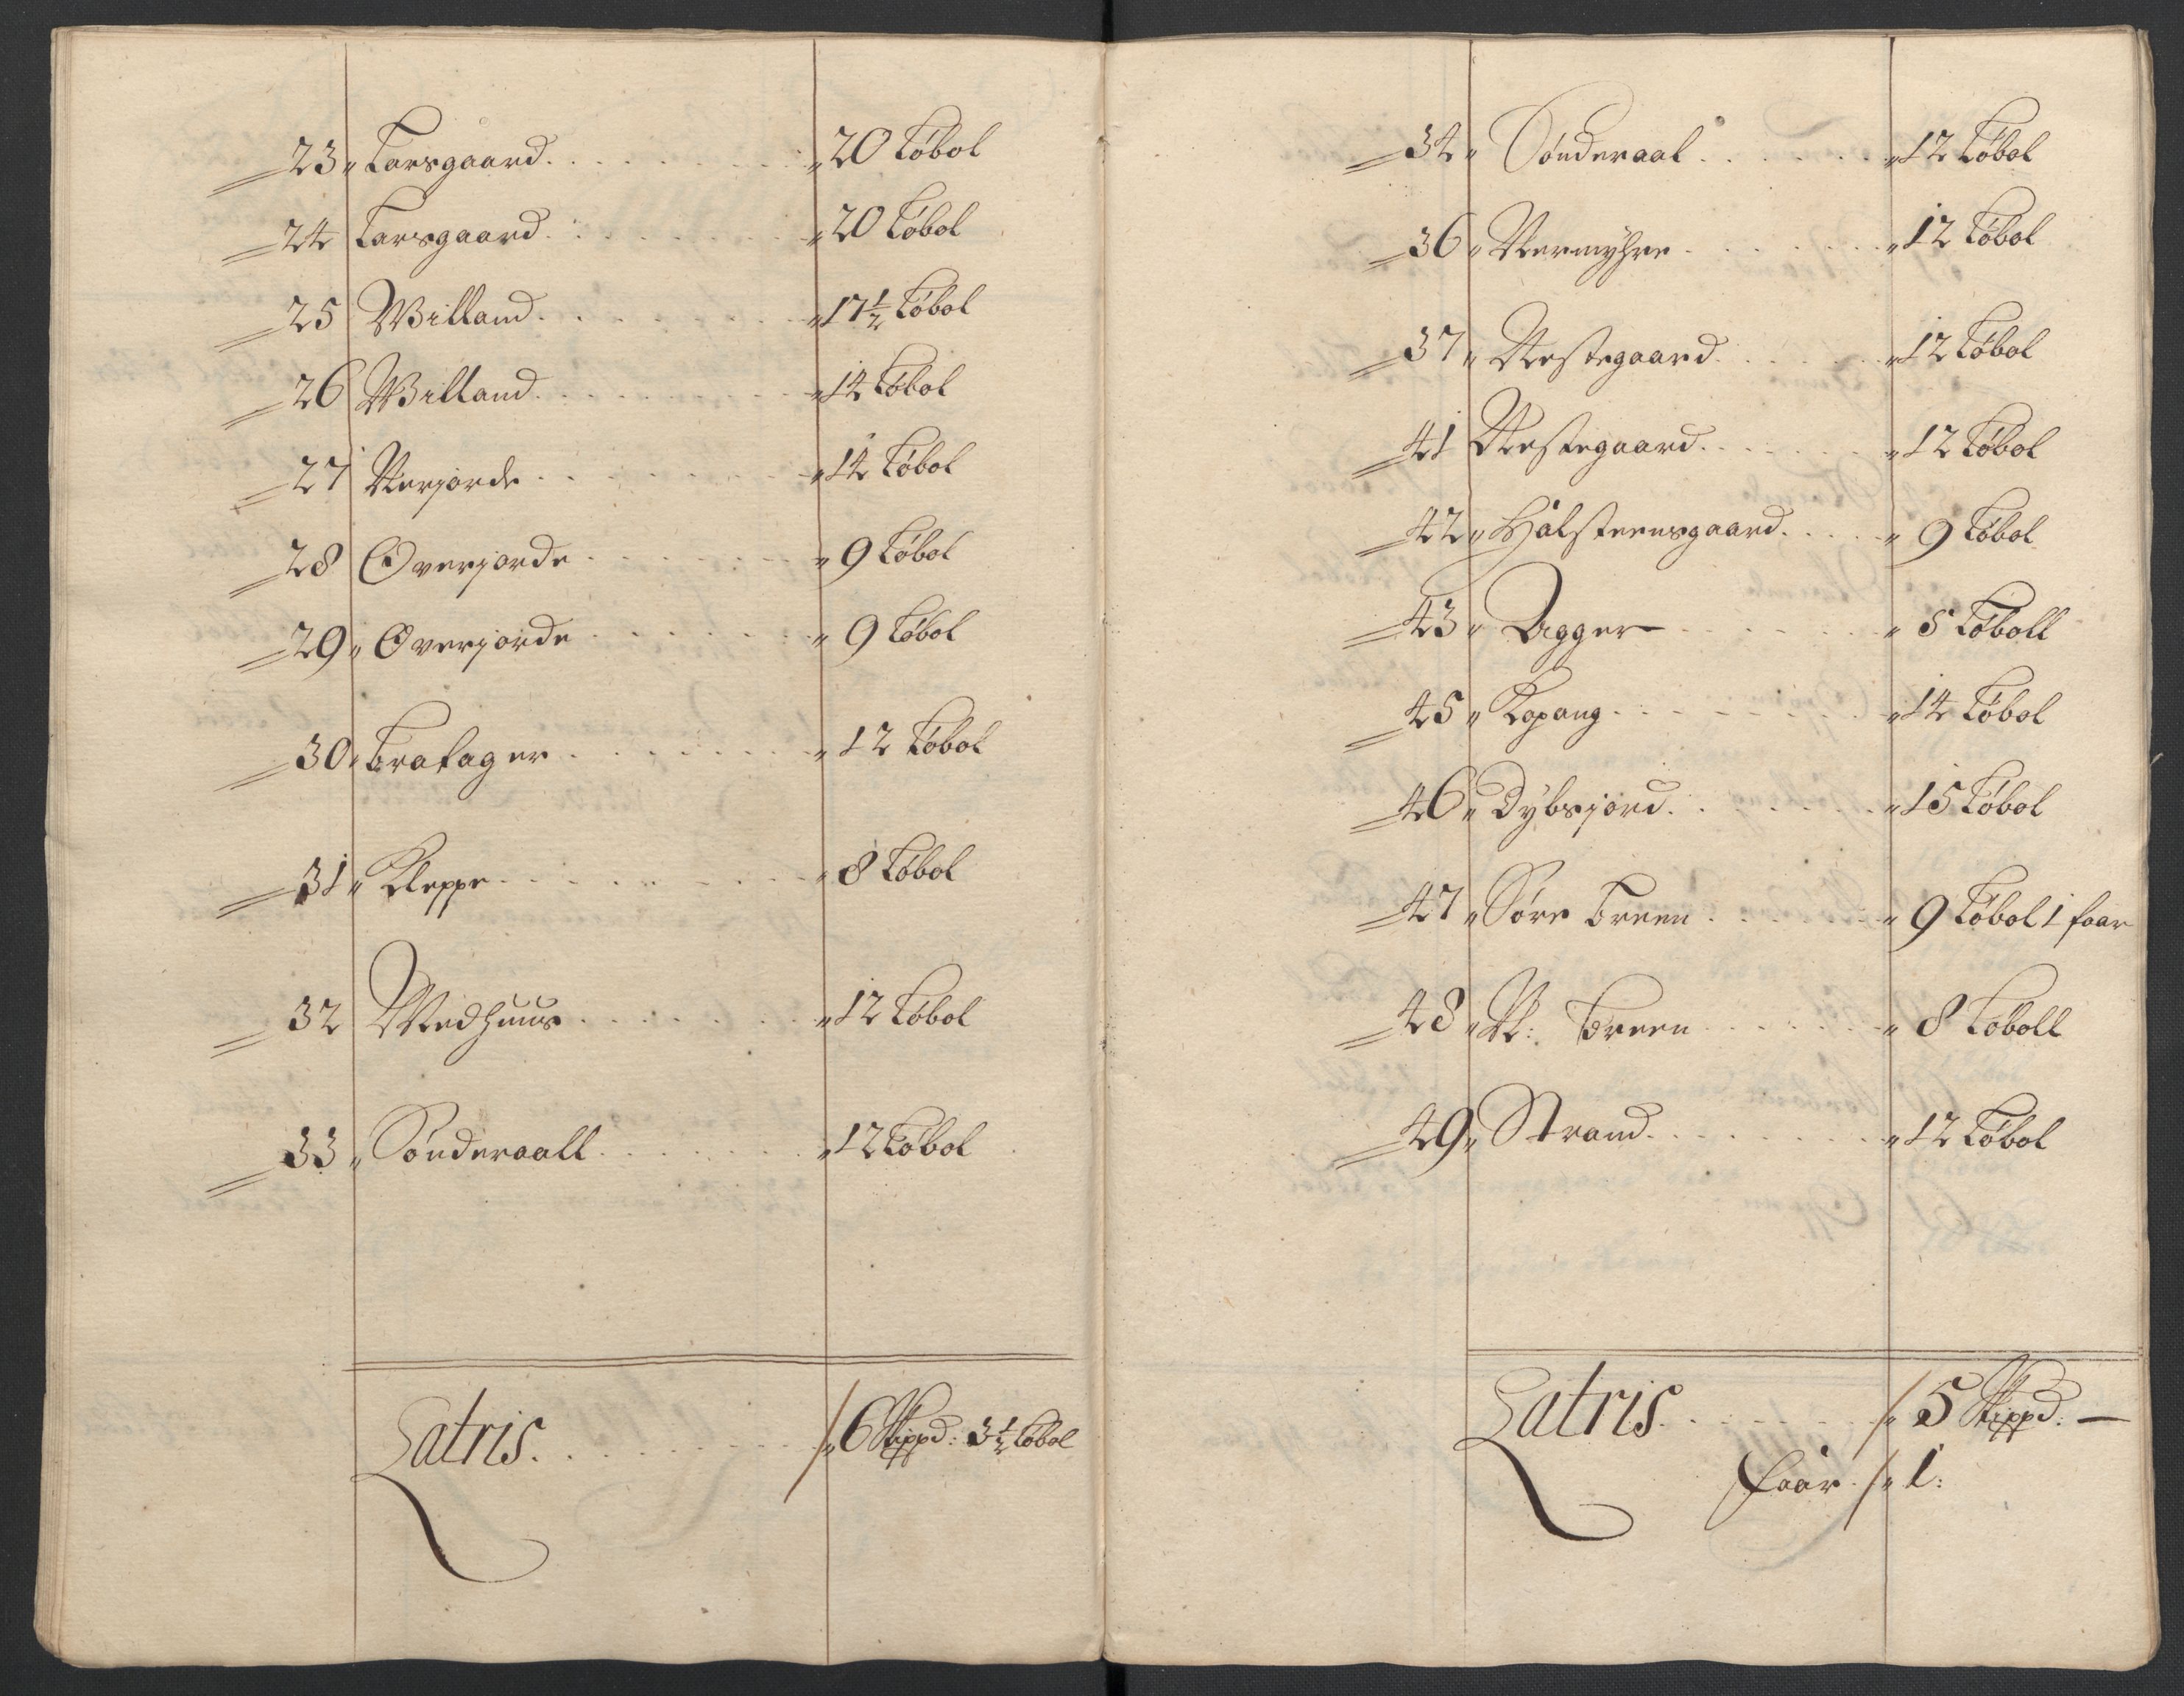 23 „ Larsgaard . . . . . . . „ 20 Løbol
24 Larsgaard . . . . . . . „ 20 Løbol
25 Willand . . . . . . . „ 17 1/2 Løbol
26 Willand . . . . . . . „ 14 Løbol
27 Nerjorde . . . . . . . „ 14 Løbol
28 Overjorde . . . . . . . „ 9 Løbol
29 „ Overjorde . . . . . . . „ 9 Løbol
30 „ Bratager . . . . . . . „ 12 Løbol
31 „ Kleppe . . . . . . . „ 8 Løbol
32 Medhuus . . . . . . . „ 12 Løbol
33 „ Sønderaall . . . . . . . „ 12 Løbol
Latris . . . . . . . „ 6 Skippd: 3 1/2 Løbol
34 „ Sønderaal . . . . . . . „ 12 Løbol
36 „ Nermyhre . . . . . . . „ 12 Løbol
37 „ Nestegaard . . . . . . . „ 12 Løbol
41 Nestegaard . . . . . . . „ 12 Løbol
42 „ Halsteensgaard . . . . . „ 9 Løbol
43 „ Agger . . . . . . . „ 5 Løboll
45 „ Kopang . . . . . . . „ 14 Løbol
46 „ Dybsjord . . . . . . . „ 15 Løbol
47 „ Søre Breen . . . . . . . „ 9 Løbol 1 faar
48 „ N: Breen . . . . . . . „ 8 Løboll
49 „ Strand . . . . . . . „ 12 Løbol
Latris . . . . . . . „ 5 Skippd: —
faar . „ 1: